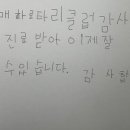 매 화로타리클럽 감사
진료 받아 이제 잘
수 있습니다. 감사합